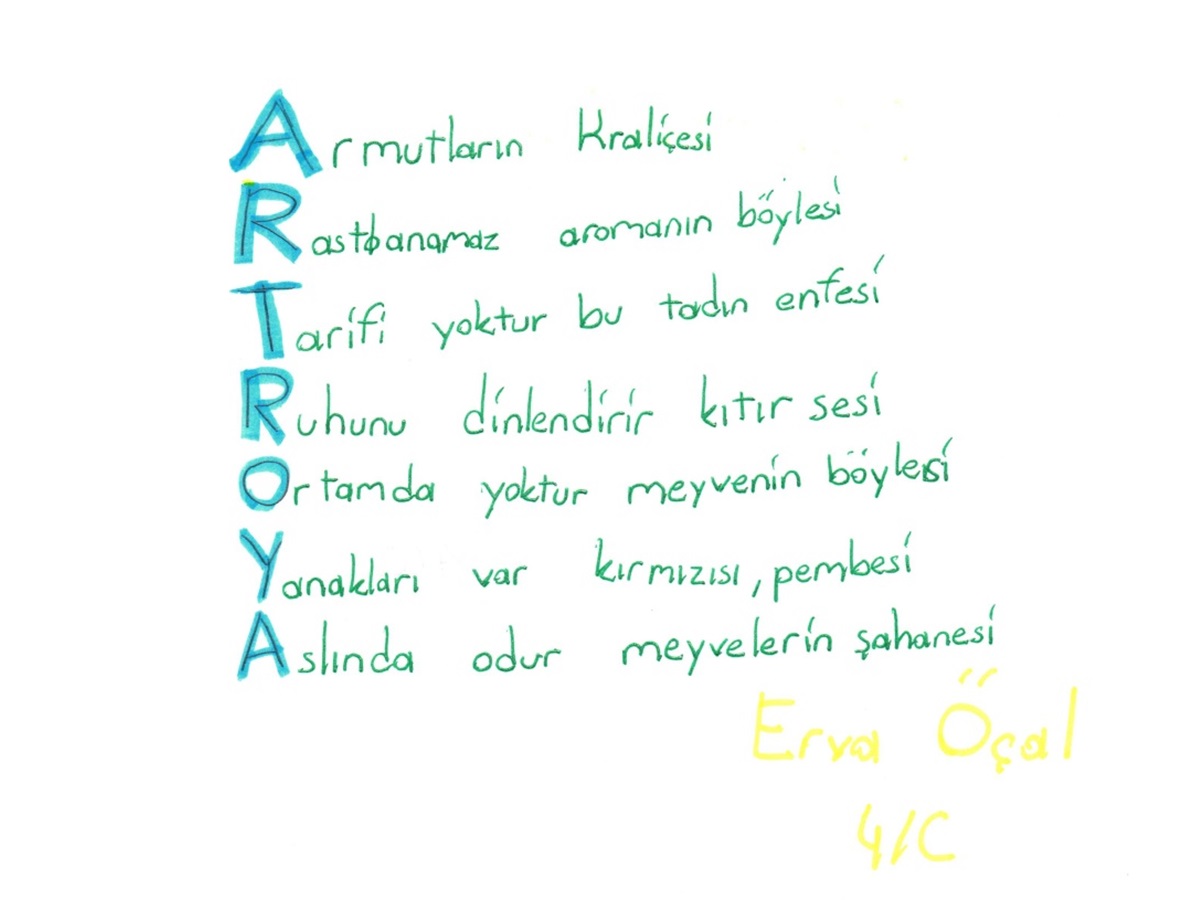 Armutların Kraliçesi
Rastbanamaz aromanın böylesi
Tarifi yoktur bu tadın enfesi
Ruhunu dinlendirir kıtır sesi
Ortamda yoktur meyvenin böylesi
Yanakları var kırmızısı, pembesi
Aslında odur meyvelerin şahanesi
Erva Öçal
4/C